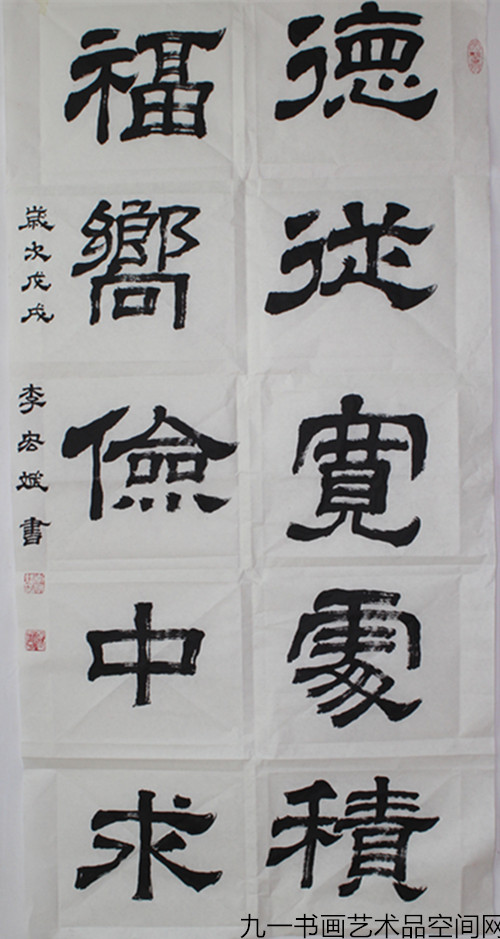 德從寬處積
福嚮儉中求
歲次戊戌 李宏斌書
九一书画艺术品空间网